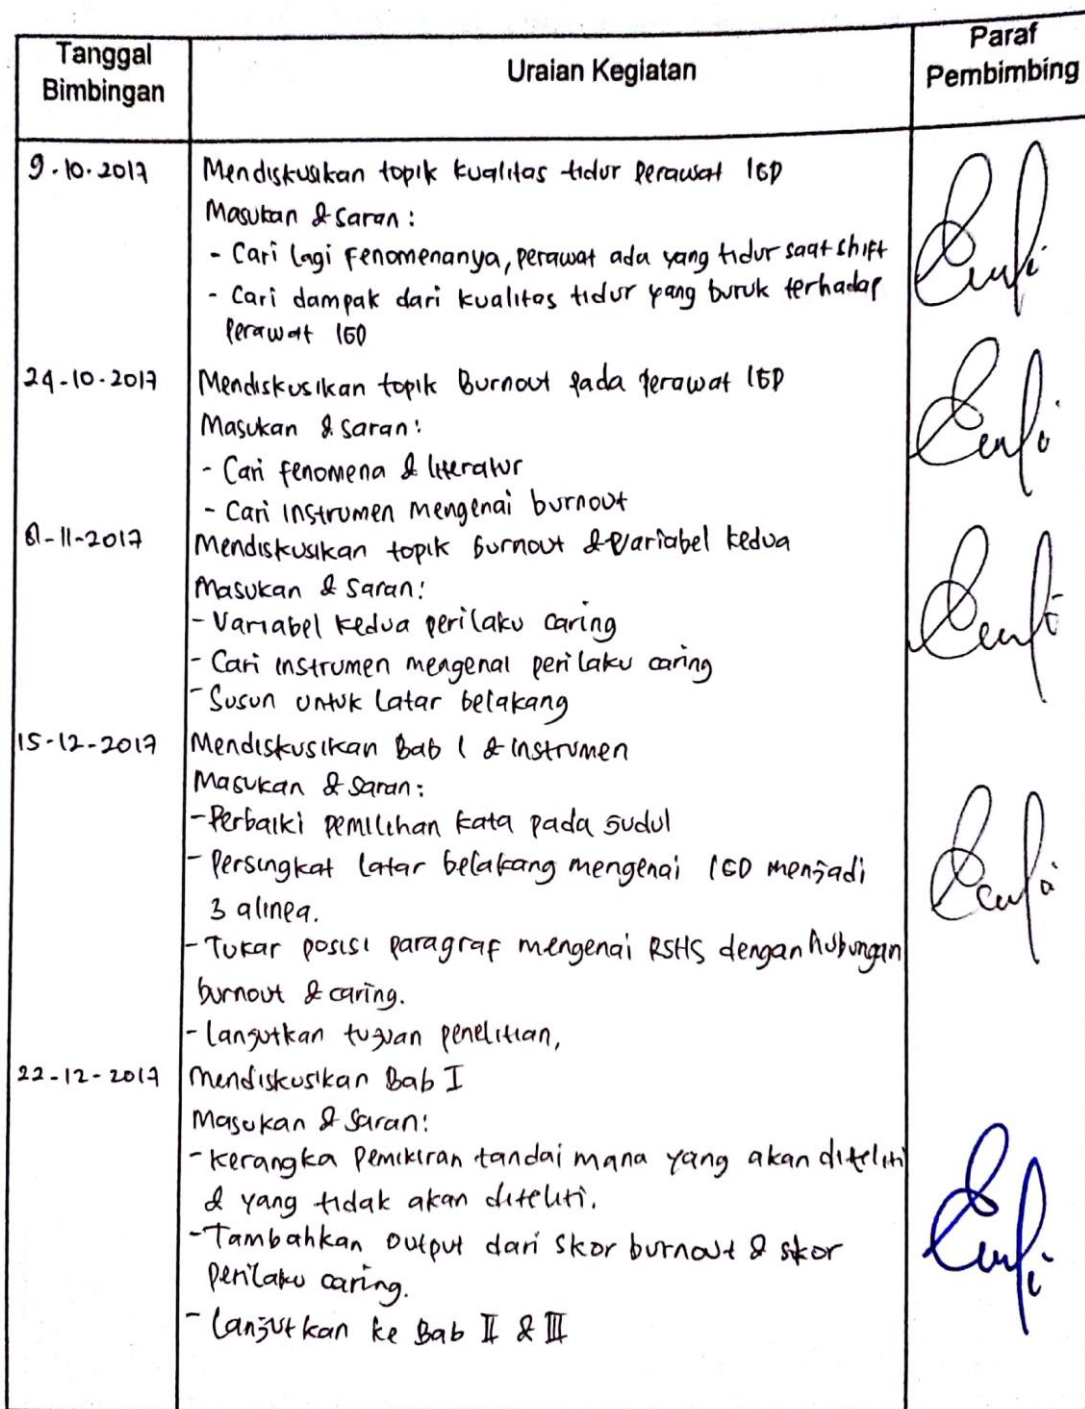 Tanggal Bimbingan
Uraian Kegiatan
Paraf Pembimbing
9-10-2017
Mendiskusikan topik kualitas tidur perawat IGD
Masukan & Saran :
- Cari lagi fenomenanya, perawat ada yang tidur saat shift
- Cari dampak dari kualitas tidur yang buruk terhadap
perawat IGD
24-10-2017
Mendiskusikan topik Burnout pada perawat IGD
Masukan & saran :
- Cari fenomena & literatur
- Cari instrumen mengenai burnout
-11-2017
Mendiskusikan topik burnout & Variabel kedua
Masukan & Saran :
- Variabel kedua perilaku caring
- Cari instrumen mengenai perilaku caring
- Susun untuk latar belakang
15-12-2017
Mendiskusikan Bab I & instrumen
Masukan & saran :
- Perbaiki pemilihan kata pada judul
- Persingkat latar belakang mengenai IGD menjadi
3 alinea.
- Tukar posisi paragraf mengenai RSHS dengan hubungan
burnout & caring.
- lanjutkan tujuan penelitian,
22-12-2017
Mendiskusikan Bab I
Masukan & Saran :
- Kerangka pemikiran tandai mana yang akan diteliti
& yang tidak akan diteliti.
- Tambahkan output dari skor burnout & skor
perilaku caring.
- lanjutkan ke Bab II & III